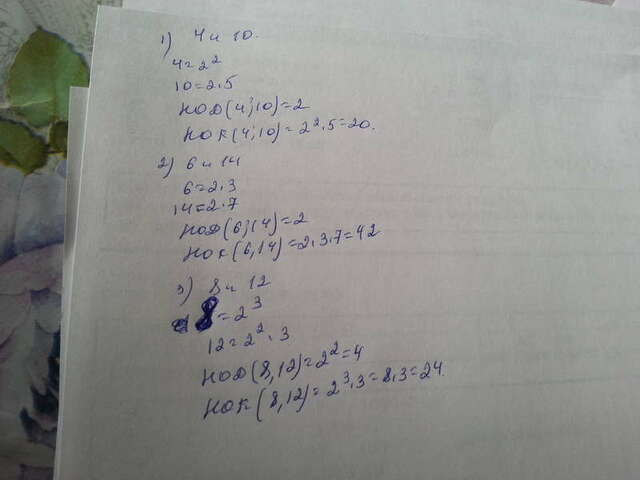 1) 4 и 10.
4=2²
10=2·5
НОД(4;10)=2
НОК(4;10)=2²·5=20.
2) 6 и 14
6=2·3
14=2·7
НОД(6;14)=2
НОК(6,14)=2·3·7=42
3) 8 и 12
8=2³
12=2²·3
НОД(8,12)=2²=4
НОК(8,12)=2³·3=8·3=24.